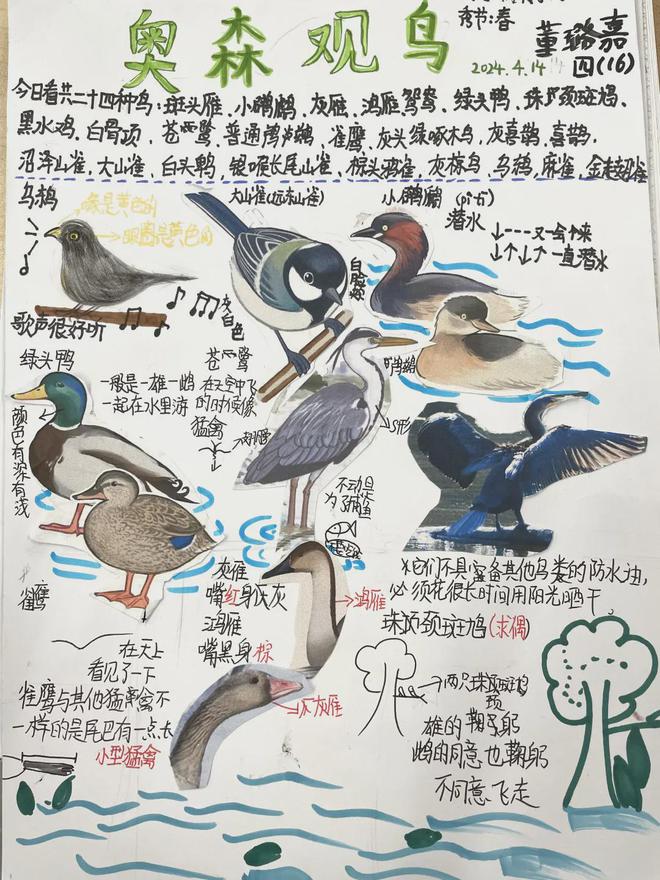 秀节:春
奥森观鸟
董璐嘉
四(16)
2024.4.14
今日看共二十四种鸟:斑头雁、小鸊鷉、灰雁、鸿雁、鸳鸯、绿头鸭、珠颈斑鸠、
黑水鸡、白骨顶、苍鹭、普通鸬鹚、雀鹰、灰头绿啄木鸟、灰喜鹊、喜鹊、
沼泽山雀、大山雀、白头鹎、银喉长尾山雀、棕头鸦雀、灰椋鸟、乌鸫、麻雀、金翅雀
乌鸫
喙是黄色的
眼圈是黄色的
歌声很好听
大山雀(远东山雀)
白脸颊
灰白色
小鸊鷉 (pì tī)
潜水
又会冲来
一直潜水
鸬鹚
绿头鸭
颜色有深有浅
一般是一雄一雌
一起在水里游
苍鹭
在天空中飞
的时候像
猛禽
S形
不动是
为了捕鱼
※它们不具备其他鸟类的防水油,
必须花很长时间用阳光晒干
灰雁
嘴红身灰
鸿雁
嘴黑身棕
→鸿雁
→灰雁
雀鹰
在天上
看见了一下
雀鹰与其他猛禽不
一样的是尾巴有一点长
小型猛禽
珠颈斑鸠(求偶)
→两只珠颈斑鸠
雄的鞠躬
雌的同意也鞠躬
不同意飞走